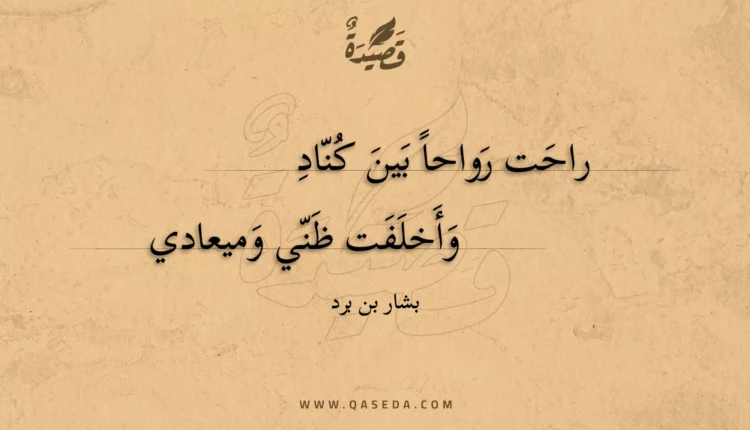 قَصِيْدَةٌ
راحَت رَواحاً بَينَ كُنّادِ
وَأَخلَفَت ظَنّي وَميعادي
بشار بن برد
WWW.QASEDA.COM